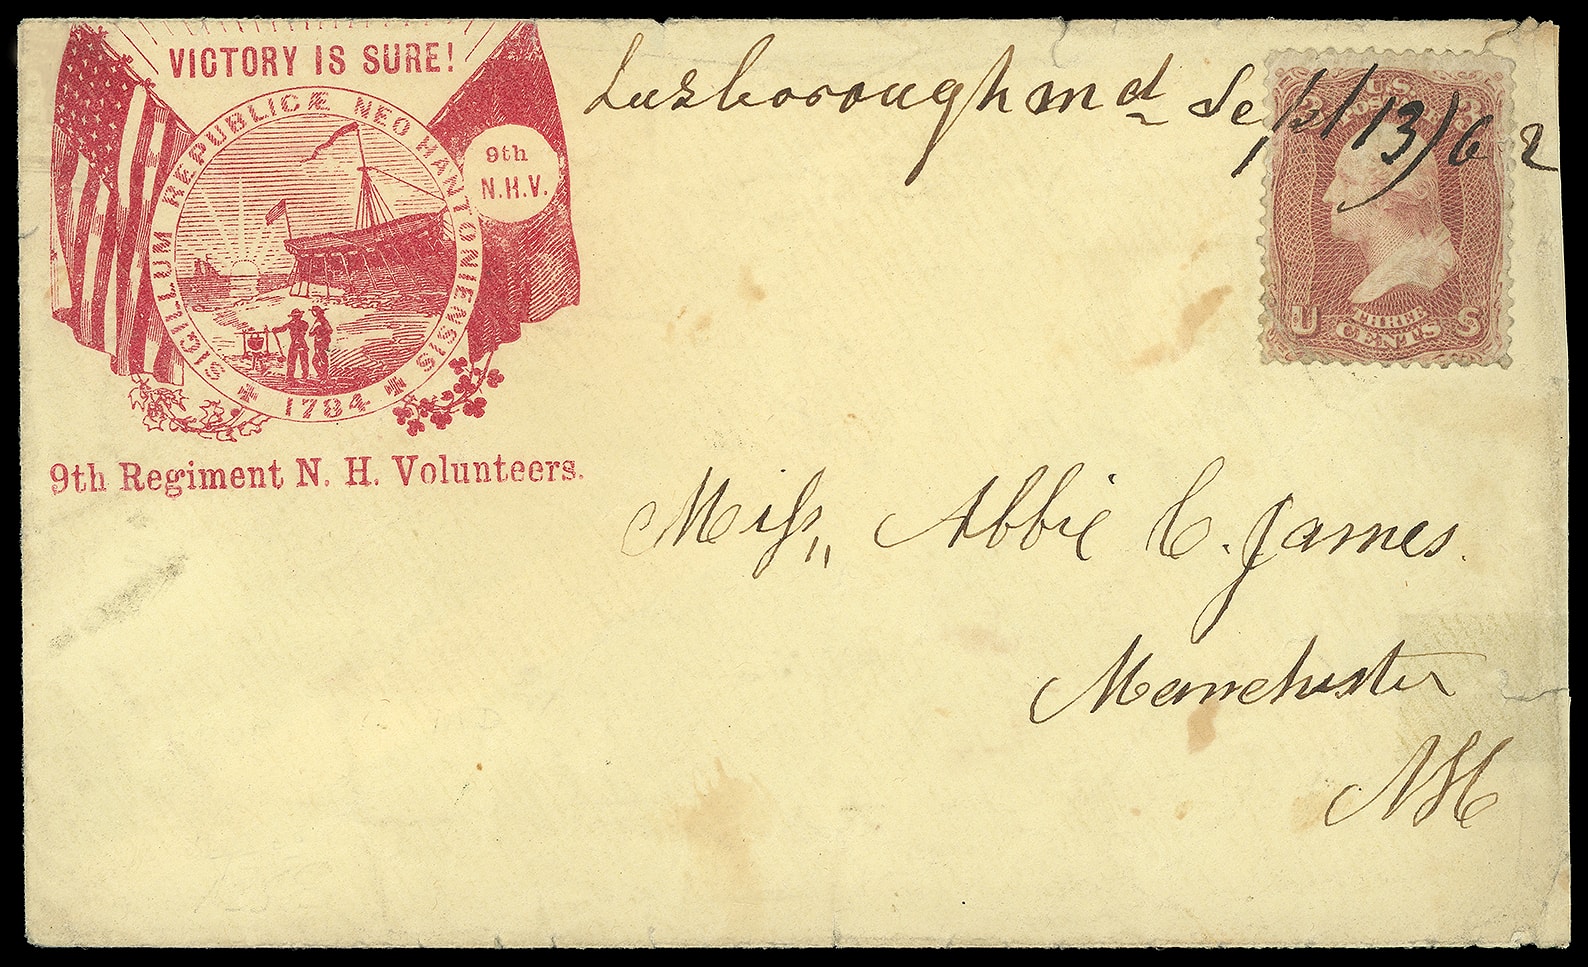 VICTORY IS SURE!
SIGILLUM REIPUBLICÆ NEO HANTONIENSIS
1784
9th
N.H.V.
9th Regiment N. H. Volunteers.
Leesborough Md Sept 13/62
U.S.
3 POSTAGE 3
U THREE CENTS S
Miss,, Abbie C. James.
Manchester
NH